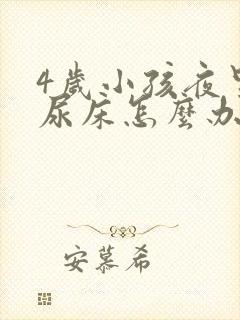 4歲小孩夜里
尿床怎麼办
安慕希